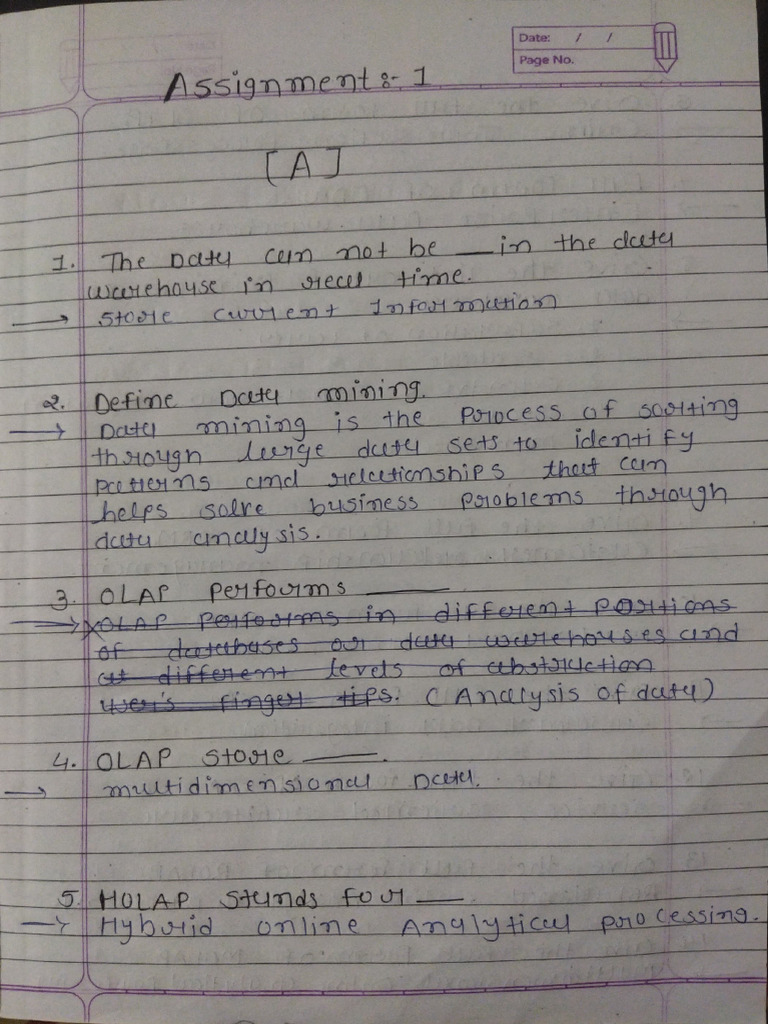 Date: / /
Page No.
Assignment :- 1
[A]
1. The Data can not be __ in the data
warehouse in real time.
→ Store current Information
2. Define Data mining.
→ Data mining is the process of sorting
through large data sets to identify
patterns and relationships that can
helps solve business problems through
data analysis.
3. OLAP Performs ____
→ OLAP Performs in different Portions
of databases or data warehouses and
at different levels of abstraction
user's finger tips. (Analysis of data)
4. OLAP store ____.
→ multidimensional Data.
5. HOLAP stands for __.
→ Hybrid online Analytical processing.